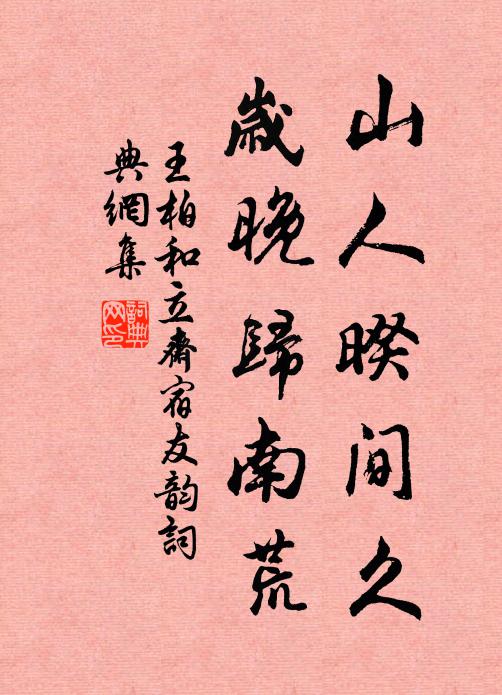 山人暌间久
歲晚歸南荒
王柏和立齋宿友韵詞
典網集
詞典网印